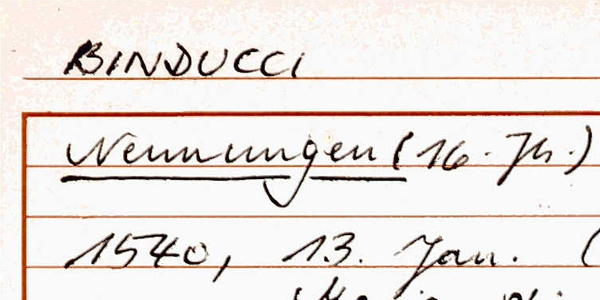 BINDUCCI
Nennungen (16. Jh.)
1540, 13. Jan. (